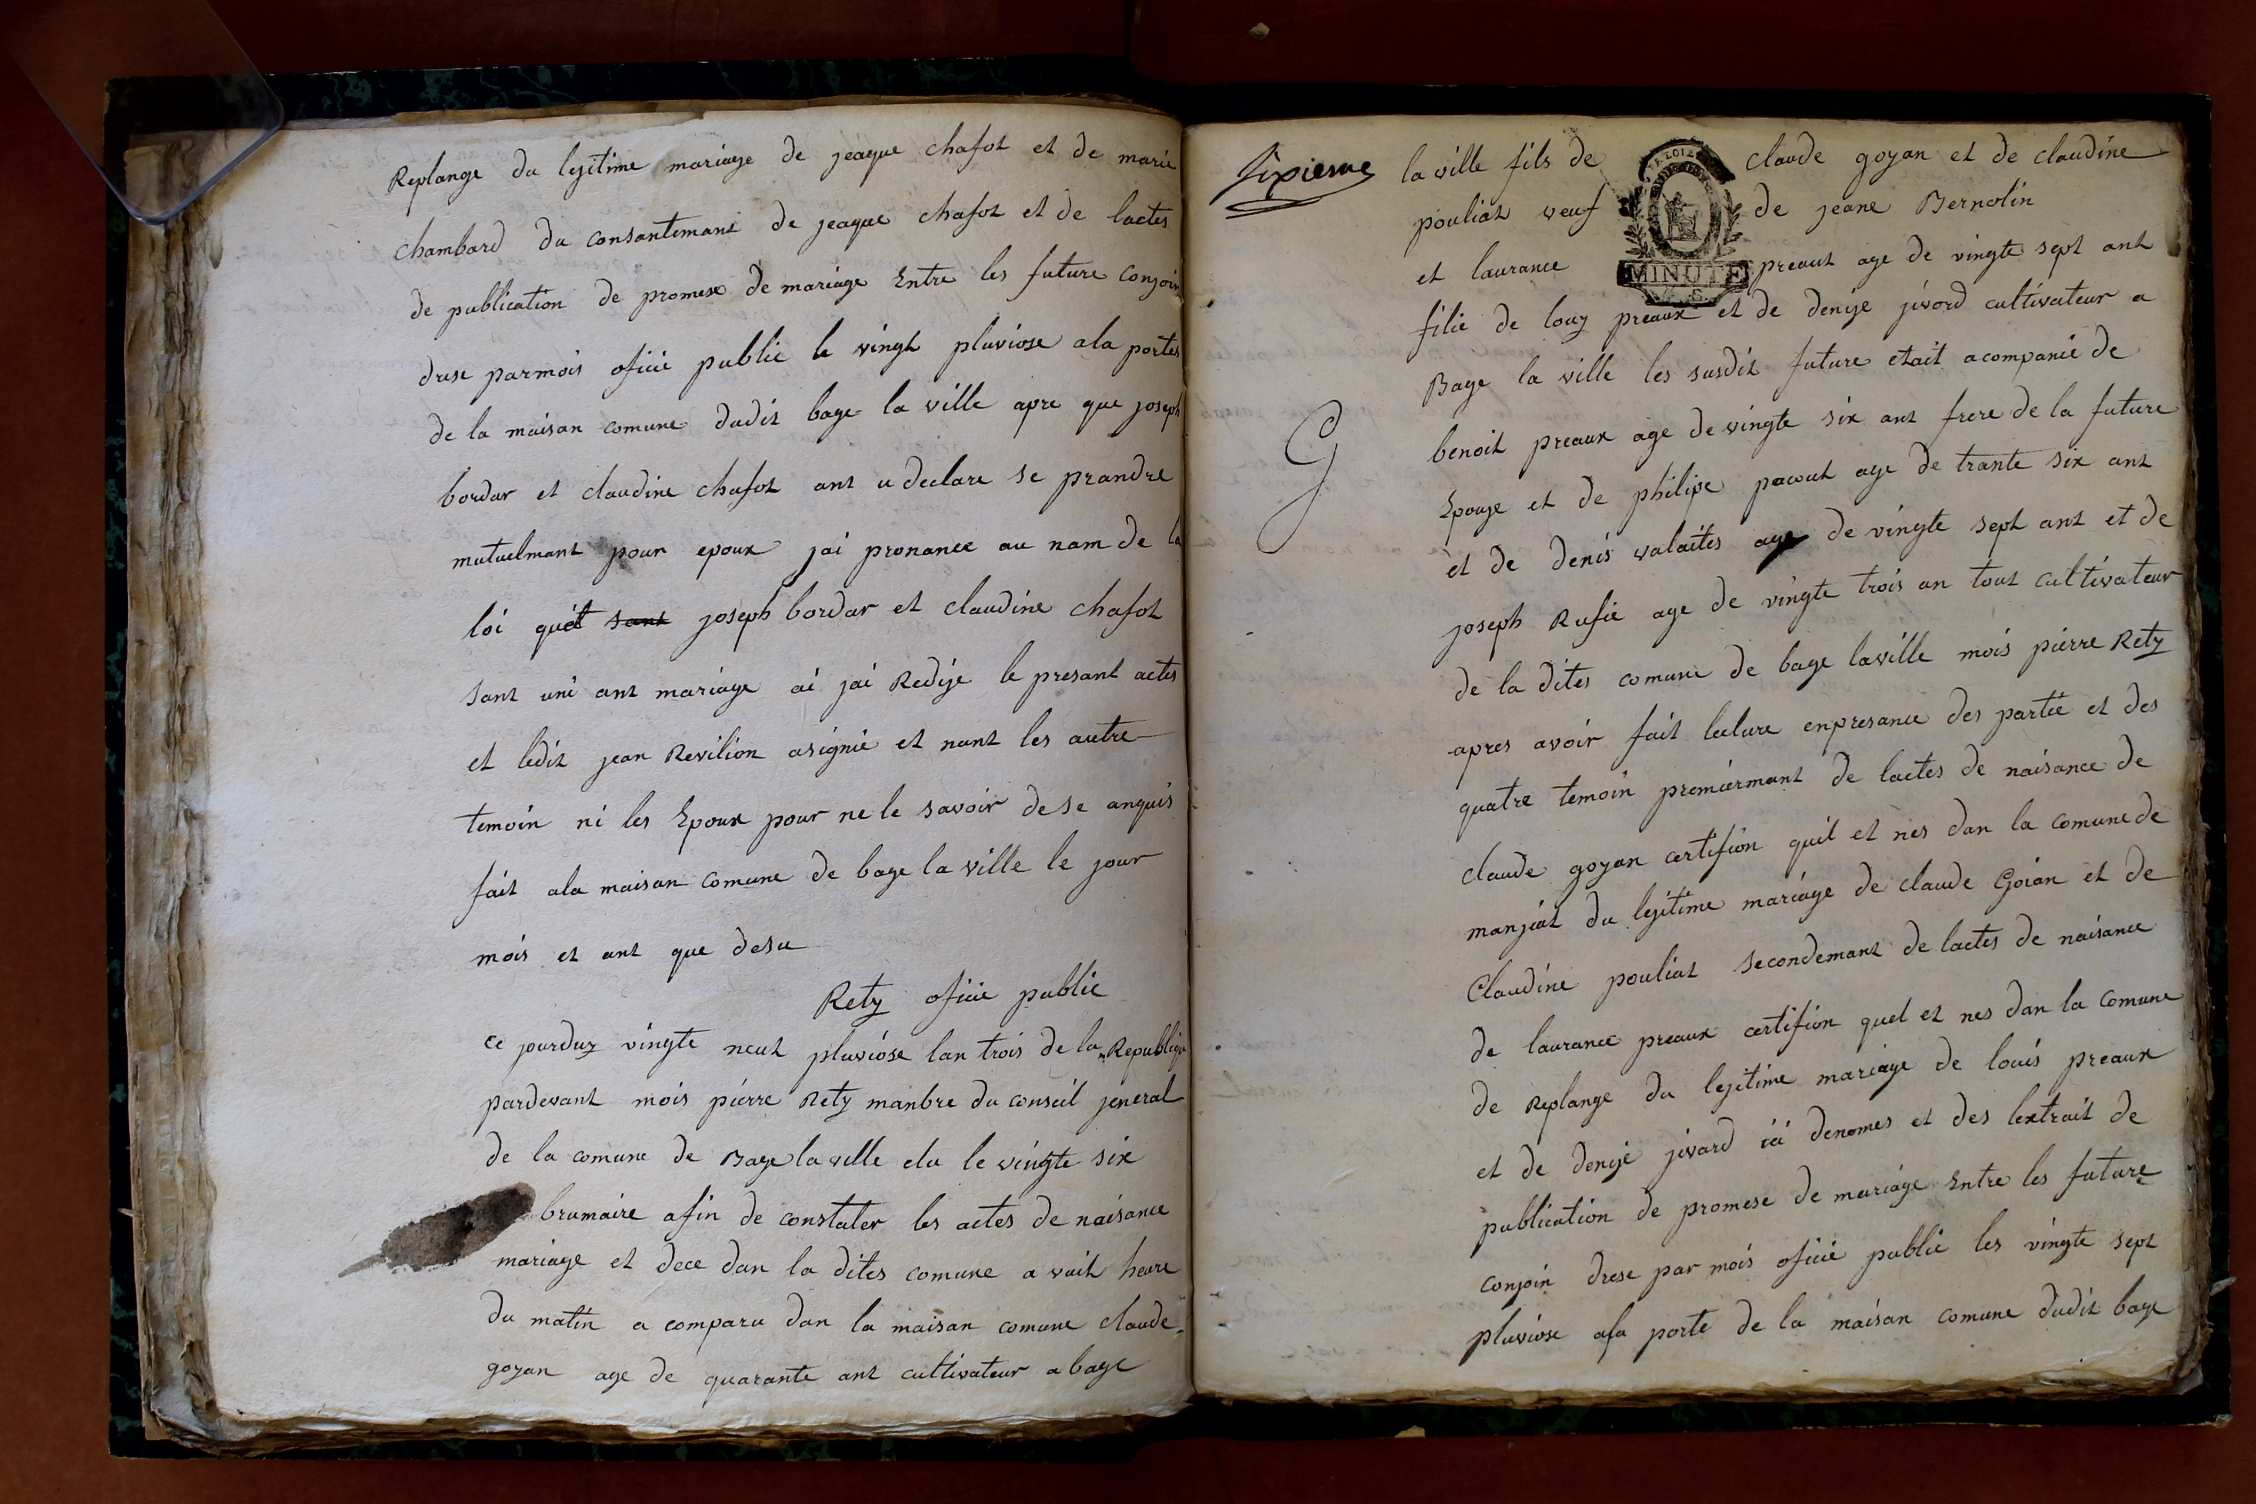 Replange du lejitime mariage de jeaque chafot et de marie
chambard du consantemant de jeaque chafot et de lactes
de publication de promese de mariage Entre les future conjoin
drese parmois oficie public le vingt pluviose ala portes
de la maison comune dudit bage la ville apre que joseph
bordar et claudine chafot ant u declare se prandre
mutuelmant pour epoux jai pronance au nam de la
loi quil sant joseph bordar et claudine chafot
sant uni ant mariage ai jai Redige le presant actes
et ledit jean Revilion asignié et nant les autre
temoin ni les Epoux pour ne le savoir de se anquis
fait ala maisan comune de bage la ville le jour
mois et ant que desu
Rety oficie public
ce jourduy vingte neut pluviose lan trois de la Republique
pardevant mois pierre Rety manbre du conseil jeneral
de la comune de Bage la ville elu le vingte six
brumaire afin de constater les actes de naisance
mariage et dece dan la dites comune a vuit heure
du matin a comparu dan la maisan comune claude
goyan age de quarante ant cultivateur a bage
Sixieme
la ville fils de claude goyan et de claudine
pouliat veuf de jeane Bernolin
et laurance preaut age de vingte sept ant
MINUTE
filie de louy preaux et de denise jivord cultivateur a
Bage la ville les susdit future etait acompanié de
benoit preaux age de vingte six ant frere de la future
G
Epouse et de philipe pacout age de trante six ant
et de denis valaites age de vingte sept ant et de
joseph Rufie age de vingte trois an tout cultivateur
de la dites comune de bage laville mois pierre Rety
apres avoir fait lecture enpresance des partie et des
quatre temoin premiermant de lactes de naisance de
claude goyan certifion quil et nes dan la comune de
manjiat du lejitime mariage de claude Goian et de
Claudine pouliat secondemant de lactes de naisance
de laurance preaux certifion quel et nes dan la comune
de Replange du lejitime mariage de louis preaux
et de denise jivard ici denomes et des lextrait de
publication de promese de mariage Entre les future
conjoin drese par mois oficie public les vingte sept
pluviose ala porte de la maisan comune dudit bage